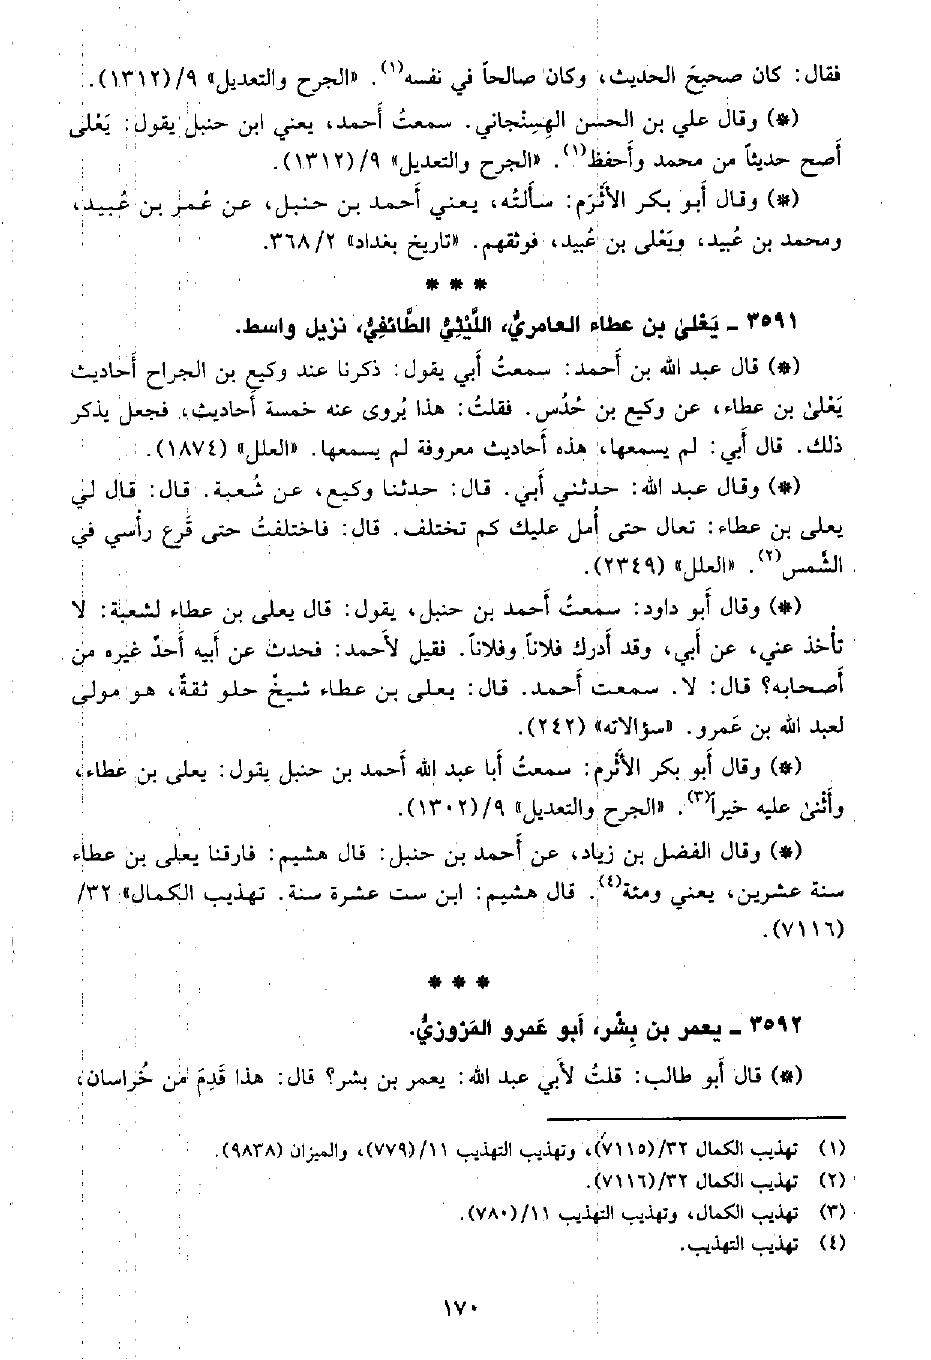 فقال: كان صحيحَ الحديث، وكان صالحاً في نفسه(١). «الجرح والتعديل» ٩/(١٣١٢).
(*) وقال علي بن الحسن الهِسِنْجاني. سمعتُ أحمد، يعني ابن حنبل يقول: يَعْلى
أصح حديثاً من محمد وأحفظ(١). «الجرح والتعديل» ٩/(١٣١٢).
(*) وقال أبو بكر الأَثْرَم: سألتُه، يعني أحمد بن حنبل، عن عُمر بن عُبيد،
ومحمد بن عُبيد، ويَعْلى بن عُبيد، فوثقهم. «تاريخ بغداد» ٢/٣٦٨.
* * *
٣٥٩١ ـ يَعْلىٰ بن عطاء العامريُّ، اللَّيْثِيُّ الطَّائفِيُّ، نزيل واسط.
(*) قال عبد الله بن أحمد: سمعتُ أبي يقول: ذكرنا عند وكيع بن الجراح أحاديث
يَعْلىٰ بن عطاء، عن وكيع بن حُدُس. فقلتُ: هذا يُروى عنه خمسة أحاديث، فجعل يذكر
ذلك. قال أبي: لم يسمعها، هذه أحاديث معروفة لم يسمعها. «العلل» (١٨٧٤).
(*) وقال عبد الله: حدثني أبي. قال: حدثنا وكيع، عن شُعبة. قال: قال لي
يعلى بن عطاء: تعال حتى أُمل عليك كم تختلف. قال: فاختلفتُ حتى قَرع رأسي في
الشَّمس(٢). «العلل» (٢٣٤٩).
(*) وقال أبو داود: سمعتُ أحمد بن حنبل، يقول: قال يعلى بن عطاء لشعبة: لا
تأخذ عني، عن أبي، وقد أدرك فلاناً وفلاناً. فقيل لأحمد: فحدث عن أبيه أحدٌ غيره من
أصحابه؟ قال: لا. سمعت أحمد. قال: يعلى بن عطاء شيخٌ حلو ثقةٌ، هو مولى
لعبد الله بن عَمرو. «سؤالاته» (٢٤٢).
(*) وقال أبو بكر الأَثْرم: سمعتُ أبا عبد الله أحمد بن حنبل يقول: يعلى بن عطاء،
وأَثْنىٰ عليه خيراً(٣). «الجرح والتعديل» ٩/(١٣٠٢).
(*) وقال الفضل بن زياد، عن أحمد بن حنبل: قال هشيم: فارقنا يعلى بن عطاء
سنة عشرين، يعني ومئة(٤). قال هشيم: ابن ست عشرة سنة. تهذيب الكمال» ٣٢/
(٧١١٦).
* * *
٣٥٩٢ ـ يعمر بن بِشْر، أبو عَمرو المَرْوزيُّ.
(*) قال أبو طالب: قلتُ لأبي عبد الله: يعمر بن بشر؟ قال: هذا قَدِمَ من خُراسان،
(١) تهذيب الكمال ٣٢/(٧١١٥)، وتهذيب التهذيب ١١/(٧٧٩)، والميزان (٩٨٣٨).
(٢) تهذيب الكمال ٣٢/(٧١١٦).
(٣) تهذيب الكمال، وتهذيب التهذيب ١١/(٧٨٠).
(٤) تهذيب التهذيب.
١٧٠